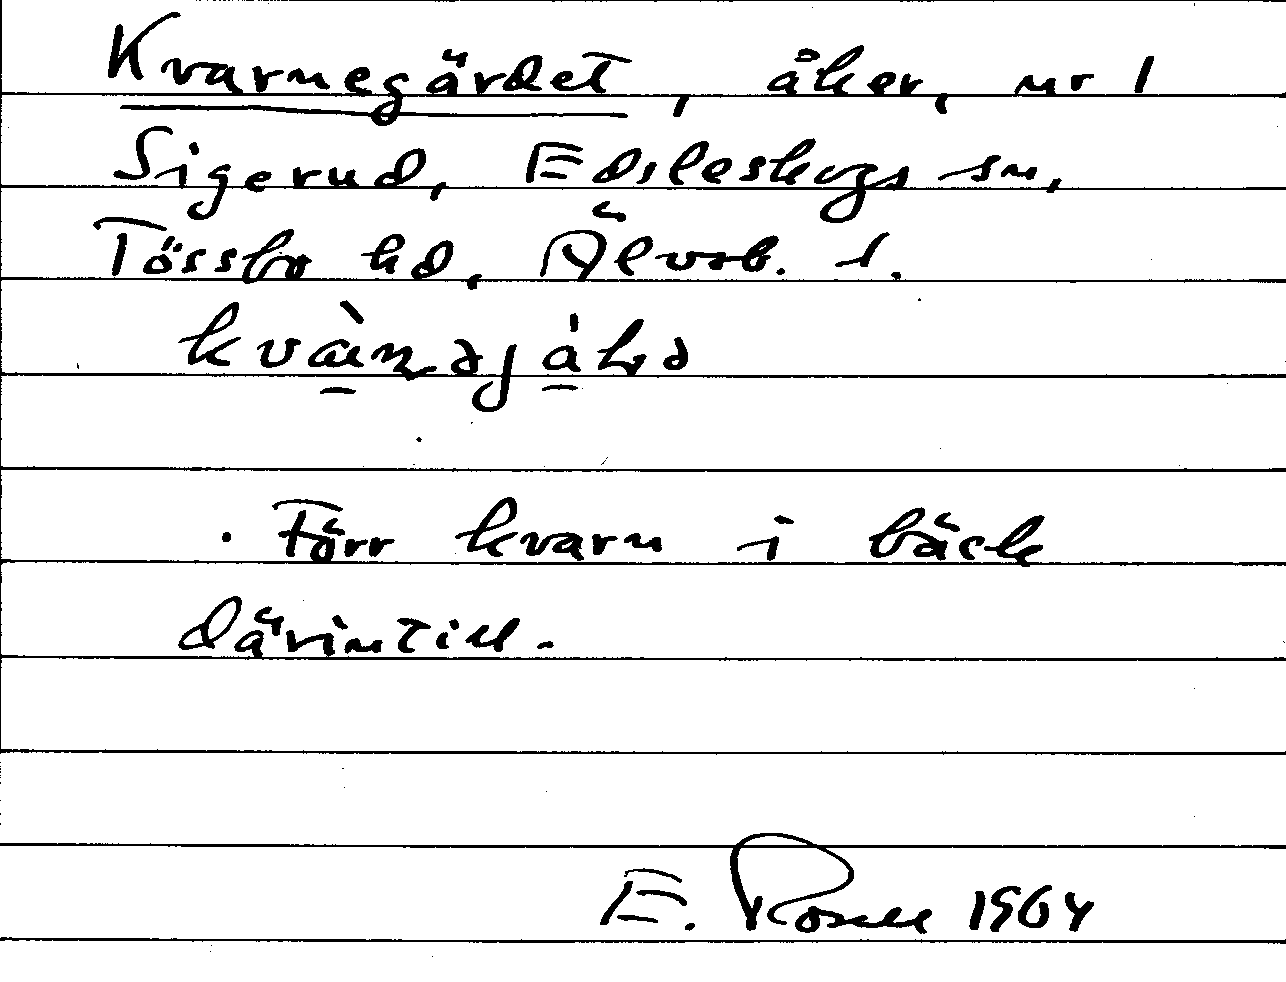 Kvarnegärdet, åker, nr 1
Sigerud, Edsleskogs sn,
Tössbo hd, Älvsb. l.
Förr kvarn i bäck
därintill.
E. Rosell 1964